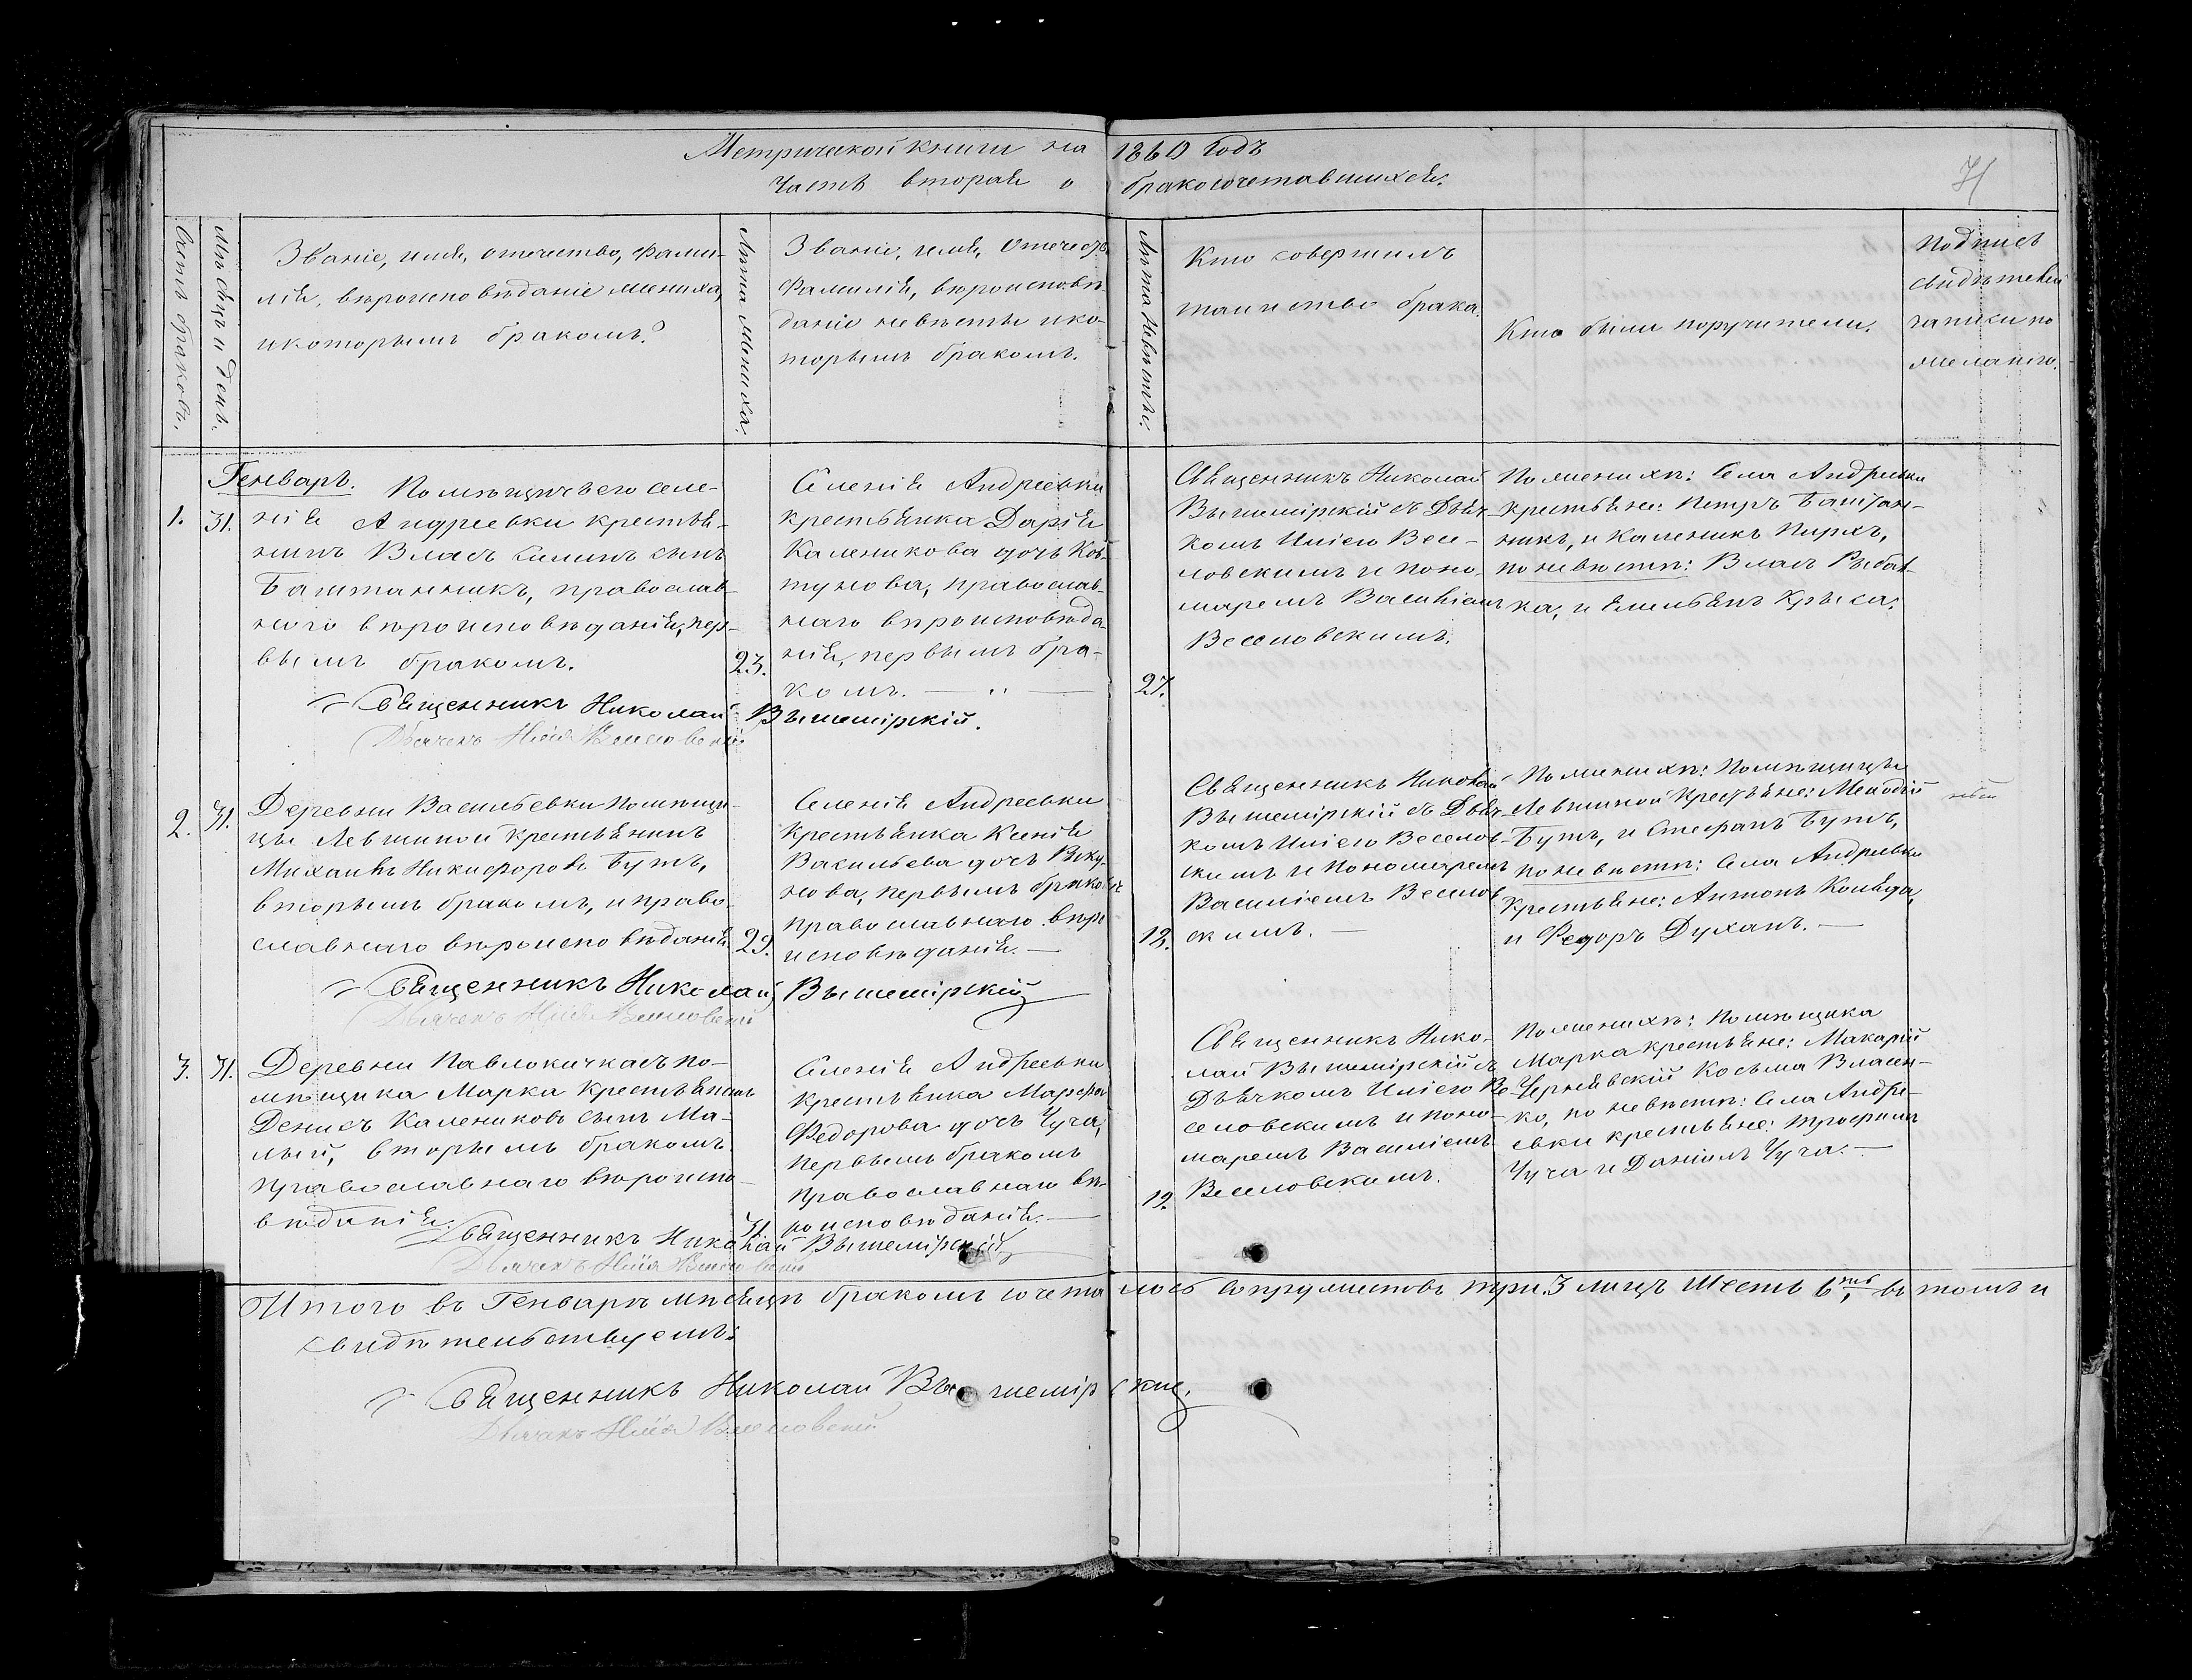 Метрической книги на 1860 годъ
Часть вторая о бракосочетавшихся.
71
Счетъ браковъ.
Мѣсяцъ и день.
Званіе, имя, отчество, фами-
лія, вѣроисповѣданіе жениха,
и которымъ бракомъ?
Лѣта жениха.
Званіе, имя, отчество
фамилія, вѣроисповѣ-
даніе невѣсты и ко-
торымъ бракомъ.
Лѣта Невѣсты.
Кто совершилъ
таинство брака.
Кто были поручители.
Подпись
свидѣтелей
записи по
желанію.
Генварь.
1.
31.
Помѣщичьего селе-
нія Андреевки крестья-
нинъ Власъ Симинъ сынъ
Баштанникъ, православ-
ного вѣроисповѣданія, пер-
вымъ бракомъ.
23.
Селенія Андреевки
крестьянка Дарія
Каленикова дочь Ков-
тунова, православ-
наго вѣроисповѣда-
нія, первымъ бра-
комъ. — " —
27.
Священникъ Николай
Вышемірскій съ Дьяч-
комъ Иліею Весе-
ловскимъ и поно-
маремъ Василіемъ
Веселовскимъ.
По женихѣ: Села Андреевки
крестьяне: Петръ Баштан-
никъ, и Каленикъ Пирхъ,
по невѣстѣ: Власъ Рыбал-
ка, и Емельянъ Крыса.
Священникъ Николай Вышемірскій.
Дьячекъ Илія Веселовскій
2.
31.
Деревни Васильевки помѣщи-
цы Левшиной крестьянинъ
Михаилъ Никифоровъ Бутъ,
вторымъ бракомъ, и право-
славнаго вѣроисповѣданія
29.
Селенія Андреевки
Крестьянка Ксенія
Васильева дочь
нова, первымъ бракомъ
православнаго вѣро
исповѣданія. —
18.
Священникъ Николай
Вышемірскій съ Дьяч-
комъ Иліею Веселов-
скимъ и Пономаремъ
Василіемъ Веселов
скимъ. —
По женихѣ: Помѣщицы
Левшиной Крестьяне: Меѳодій
Бутъ, и Стефанъ Бутъ,
по невѣстѣ: Села Андреевки
Крестьяне: Антонъ Коляда,
и Федоръ Духанъ. —
Священникъ Николай Вышемірскій
Дьячекъ Илія Веселовскій
3.
31.
Деревни Павлокичкасъ по-
мѣщика Марка Крестьянинъ
Денисъ Калениковъ сынъ Ма-
лый, вторымъ бракомъ
православнаго вѣроиспо-
вѣданія.
31.
Селенія Андреевки
Крестьянка Марфа
Федорова дочь Чуча,
первымъ бракомъ
православнаго вѣ-
роисповѣданія. —
19.
Священникъ Нико-
лай Вышемірскій съ
Дьячкомъ Иліею Ве-
селовскимъ и поно-
маремъ Василіемъ
Веселовскимъ.
По женихѣ: Помѣщика
Марка крестьяне: Макарій
Чернявскій Косьма Власен-
ко, по невѣстѣ: Села Андре-
евки крестьяне: Трофимъ
Чуча и Даніилъ Чуча. —
Священникъ Николай Вышемірскій
Дьячекъ Илія Веселовскій
Итого въ Генварѣ мѣсяцѣ бракомъ сочеталось супружествъ три. 3 лицъ шесть 6ть, въ томъ и
свидѣтельствуемъ:
Священникъ Николай Вышемірскій.
Дьячекъ Илія Веселовскій